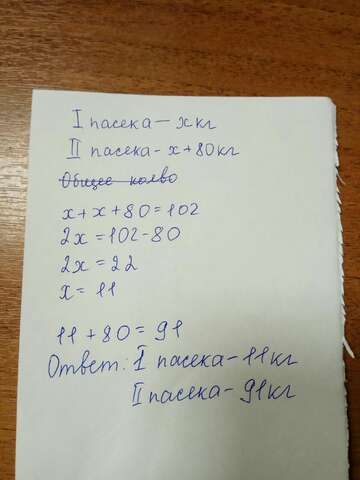 I пасека - x кг
II пасека - x + 80 кг
Общее колво
x + x + 80 = 102
2x = 102 - 80
2x = 22
x = 11
11 + 80 = 91
Ответ: I пасека - 11 кг
II пасека - 91 кг